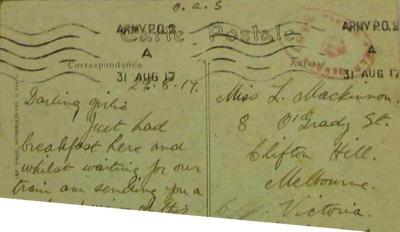 O.A.S
ARMY P.O. 2
A
31 AUG 17
ARMY P.O. 2
A
31 AUG 17
Carte Postale
Correspondance
29.8.17.
Darling girlie
Just had
breakfast here and
whilst waiting for our
train am sending you a
Miss L. Mackinnon.
8 O'Grady St.
Clifton Hill.
Melbourne.
Victoria.